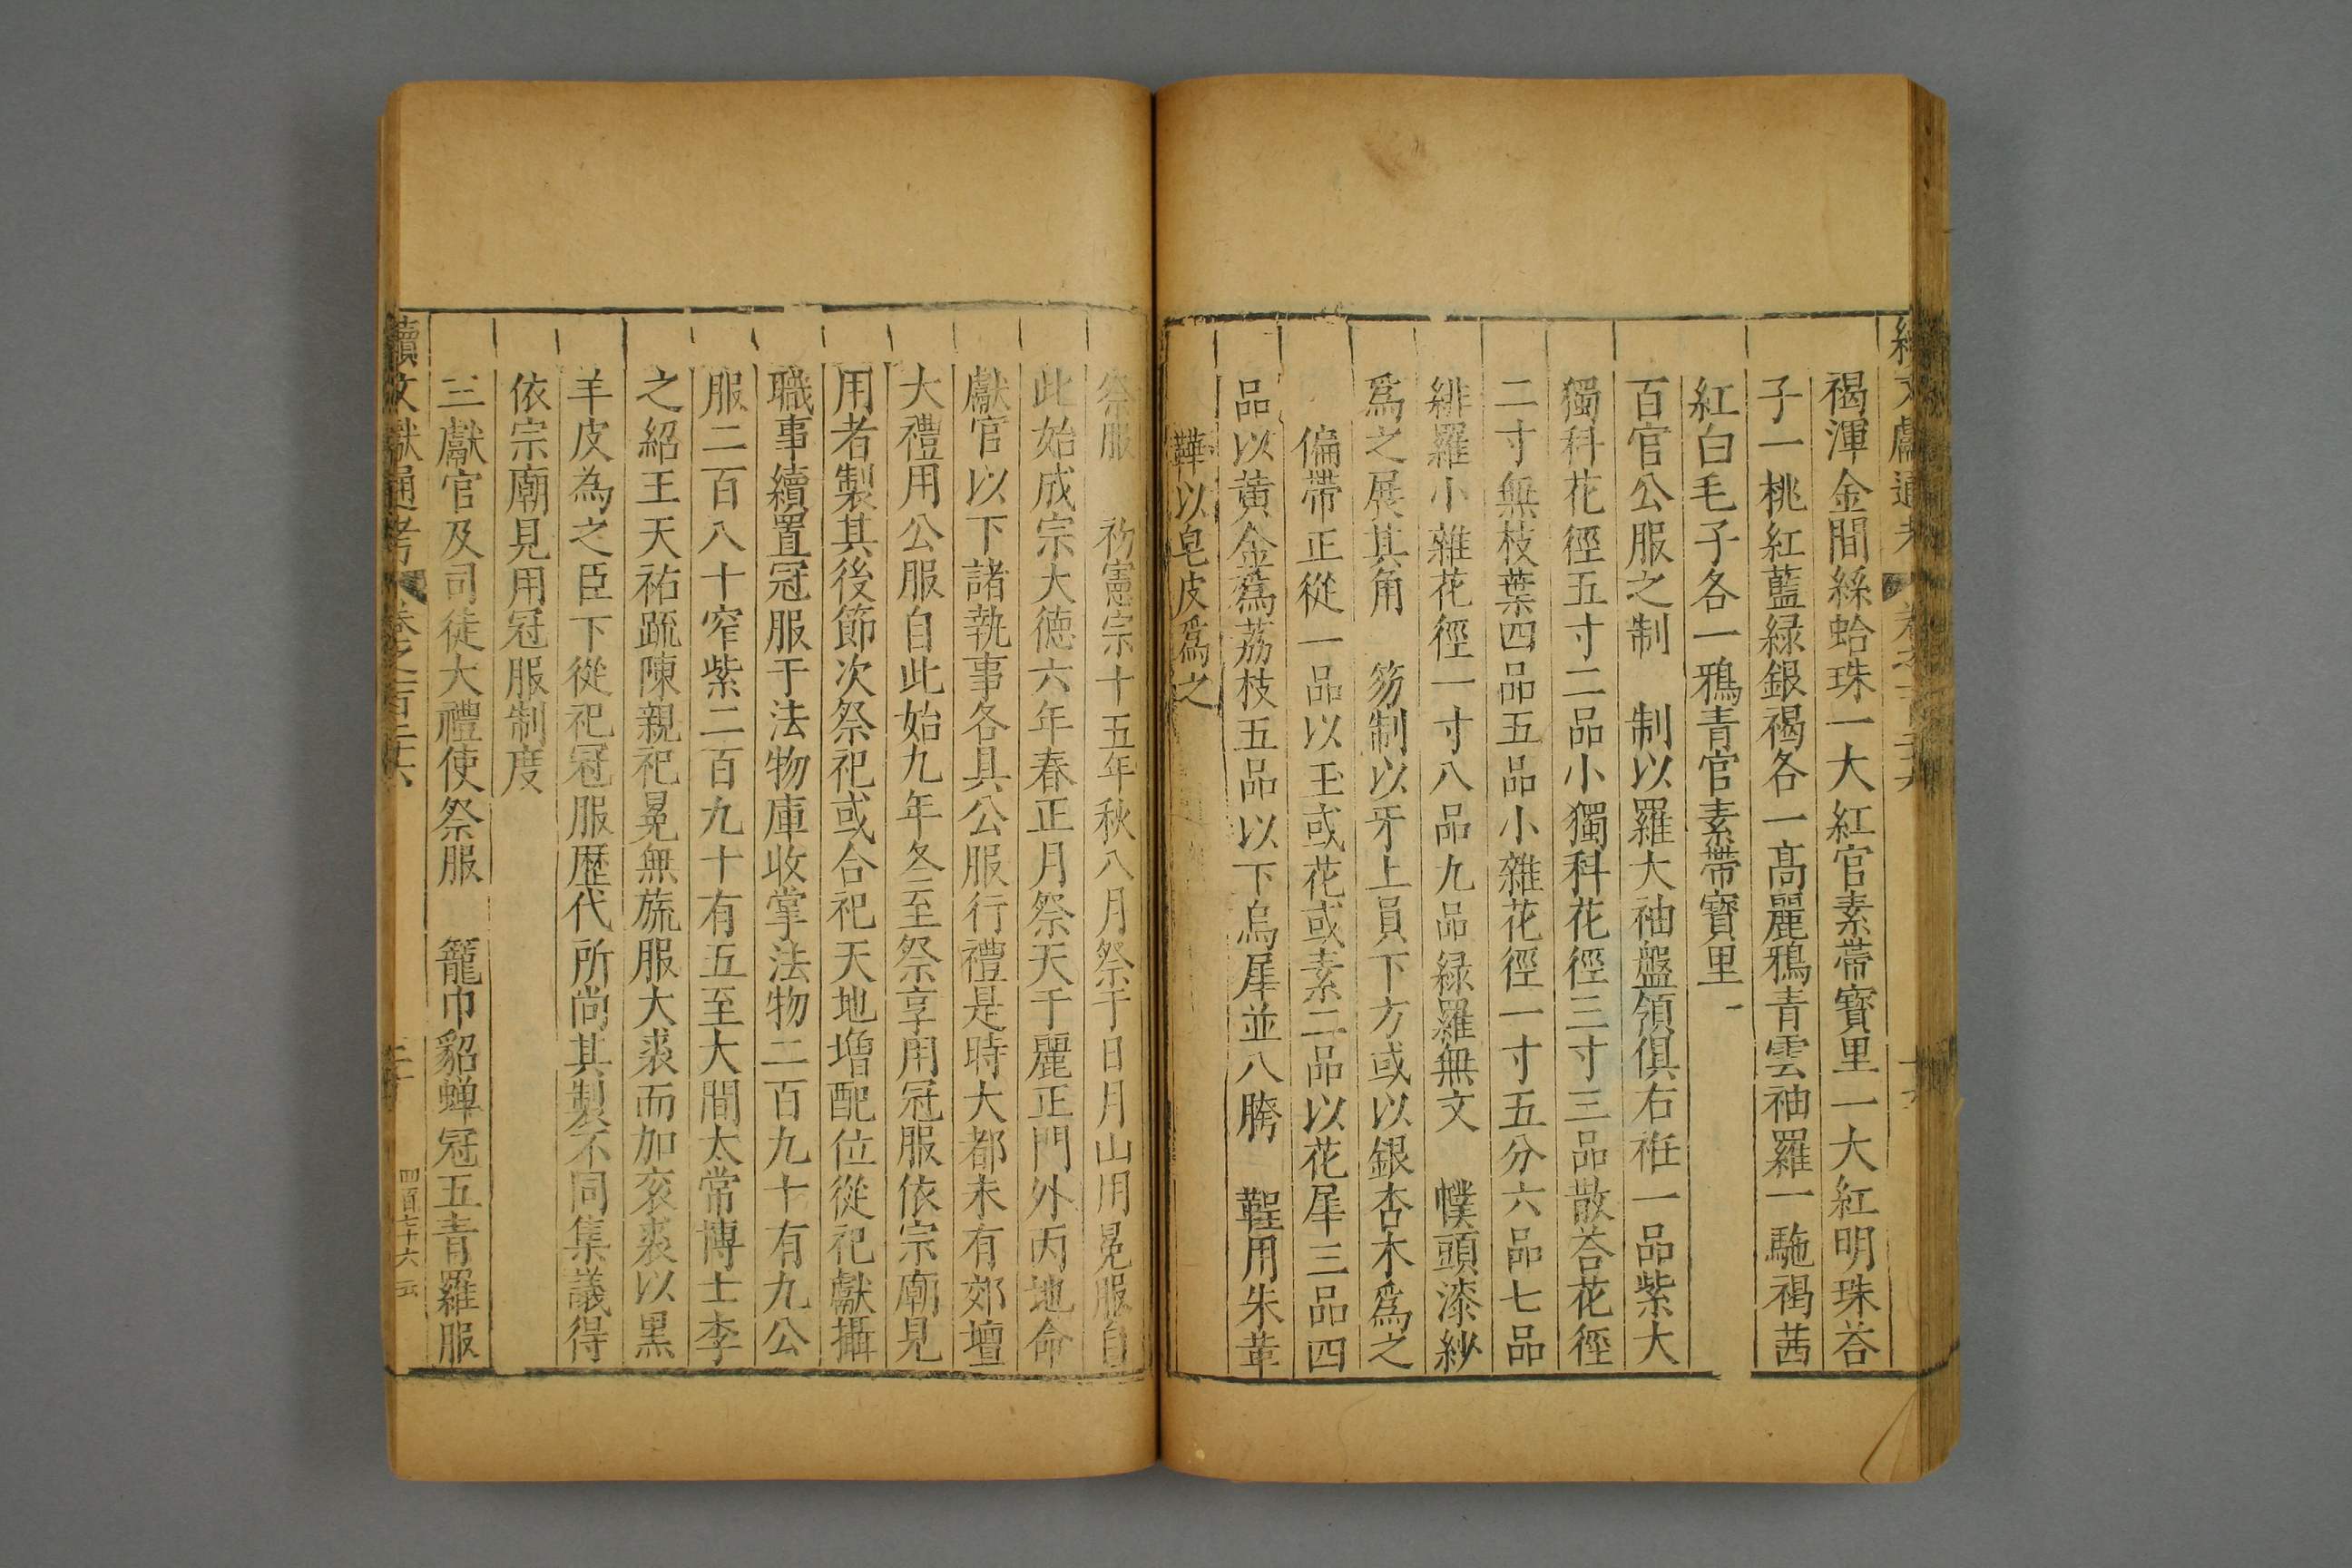 褐渾金間絲蛤珠一大紅官素帶寶里一大紅明珠荅
子一桃紅藍緑銀褐各一高麗鴉青雲袖羅一駞褐茜
紅白毛子各一鴉青官素帶寶里一
百官公服之制　制以羅大袖盤領俱右袵一品紫大
獨科花徑五寸二品小獨科花徑三寸三品散荅花徑
二寸無枝葉四品五品小雜花徑一寸五分六品七品
緋羅小雜花徑一寸八品九品緑羅無文　幞頭漆紗
爲之展其角　笏制以牙上員下方或以銀杏木爲之
偏帶正從一品以玉或花或素二品以花犀三品四
品以黄金爲荔枝五品以下烏犀並八胯　鞓用朱革
鞾以皂皮爲之
祭服　初憲宗十五年秋八月祭于日月山用冕服自
此始成宗大德六年春正月祭天于麗正門外丙地命
獻官以下諸執事各具公服行禮是時大都未有郊壇
大禮用公服自此始九年冬至祭享用冠服依宗廟見
用者製其後節次祭祀或合祀天地增配位從祀獻攝
職事續置冠服于法物庫收掌法物二百九十有九公
服二百八十窄紫二百九十有五至大間太常博士李
之紹王天祐疏陳親祀冕無旒服大裘而加衮裘以黑
羊皮為之臣下從祀冠服歷代所尚其製不同集議得
依宗廟見用冠服制度
三獻官及司徒大禮使祭服　籠巾貂蟬冠五青羅服
續文獻通考　卷之一百二十六
四百七十六